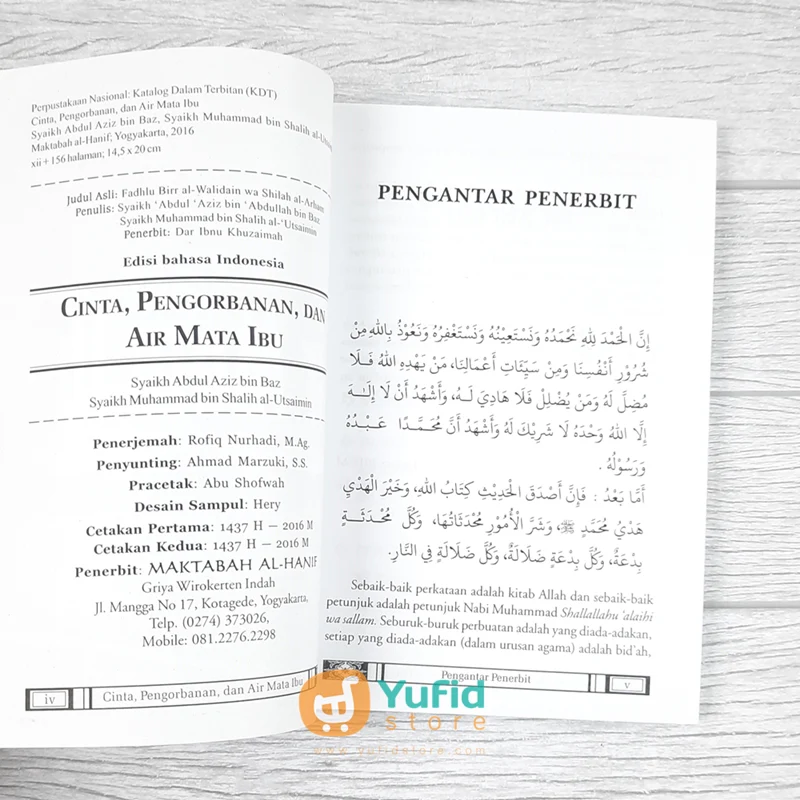 Perpustakaan Nasional: Katalog Dalam Terbitan (KDT)
Cinta, Pengorbanan, dan Air Mata Ibu
Syaikh Abdul Aziz bin Baz, Syaikh Muhammad bin Shalih al-Utsaimin
Maktabah al-Hanif; Yogyakarta, 2016
xii + 156 halaman; 14,5 x 20 cm
Judul Asli: Fadhlu Birr al-Walidain wa Shilah al-Arham
Penulis: Syaikh 'Abdul 'Aziz bin 'Abdullah bin Baz
Syaikh Muhammad bin Shalih al-'Utsaimin
Penerbit: Dar Ibnu Khuzaimah
Edisi bahasa Indonesia
CINTA, PENGORBANAN, DAN
AIR MATA IBU
Syaikh Abdul Aziz bin Baz
Syaikh Muhammad bin Shalih al-Utsaimin
Penerjemah: Rofiq Nurhadi, M.Ag.
Penyunting: Ahmad Marzuki, S.S.
Pracetak: Abu Shofwah
Desain Sampul: Hery
Cetakan Pertama: 1437 H – 2016 M
Cetakan Kedua: 1437 H – 2016 M
Penerbit: MAKTABAH AL-HANIF
Griya Wirokerten Indah
Jl. Mangga No 17, Kotagede, Yogyakarta,
Telp. (0274) 373026,
Mobile: 081.2276.2298
iv Cinta, Pengorbanan, dan Air Mata Ibu
PENGANTAR PENERBIT
إِنَّ الْحَمْدَ لِلَّهِ نَحْمَدُهُ وَنَسْتَعِيْنُهُ وَنَسْتَغْفِرُهُ وَنَعُوْذُ بِاللَّهِ مِنْ
شُرُوْرِ أَنْفُسِنَا وَمِنْ سَيِّئَاتِ أَعْمَالِنَا، مَنْ يَهْدِهِ اللَّهُ فَلَا
مُضِلَّ لَهُ وَمَنْ يُضْلِلْ فَلَا هَادِيَ لَهُ، وَأَشْهَدُ أَنْ لَا إِلَهَ
إِلَّا اللَّهُ وَحْدَهُ لَا شَرِيْكَ لَهُ وَأَشْهَدُ أَنَّ مُحَمَّدًا عَبْدُهُ
وَرَسُوْلُهُ .
أَمَّا بَعْدُ : فَإِنَّ أَصْدَقَ الْحَدِيْثِ كِتَابُ اللَّهِ، وَخَيْرَ الْهَدْيِ
هَدْيُ مُحَمَّدٍ ﷺ، وَشَرَّ الْأُمُوْرِ مُحْدَثَاتُهَا، وَكُلَّ مُحْدَثَةٍ
بِدْعَةٌ، وَكُلَّ بِدْعَةٍ ضَلَالَةٌ، وَكُلَّ ضَلَالَةٍ فِي النَّارِ.
Sebaik-baik perkataan adalah kitab Allah dan sebaik-baik
petunjuk adalah petunjuk Nabi Muhammad Shallallahu 'alaihi
wa sallam. Seburuk-buruk perbuatan adalah yang diada-adakan,
setiap yang diada-adakan (dalam urusan agama) adalah bid'ah,
Pengantar Penerbit v
Yufid
store
www.yufidstore.com